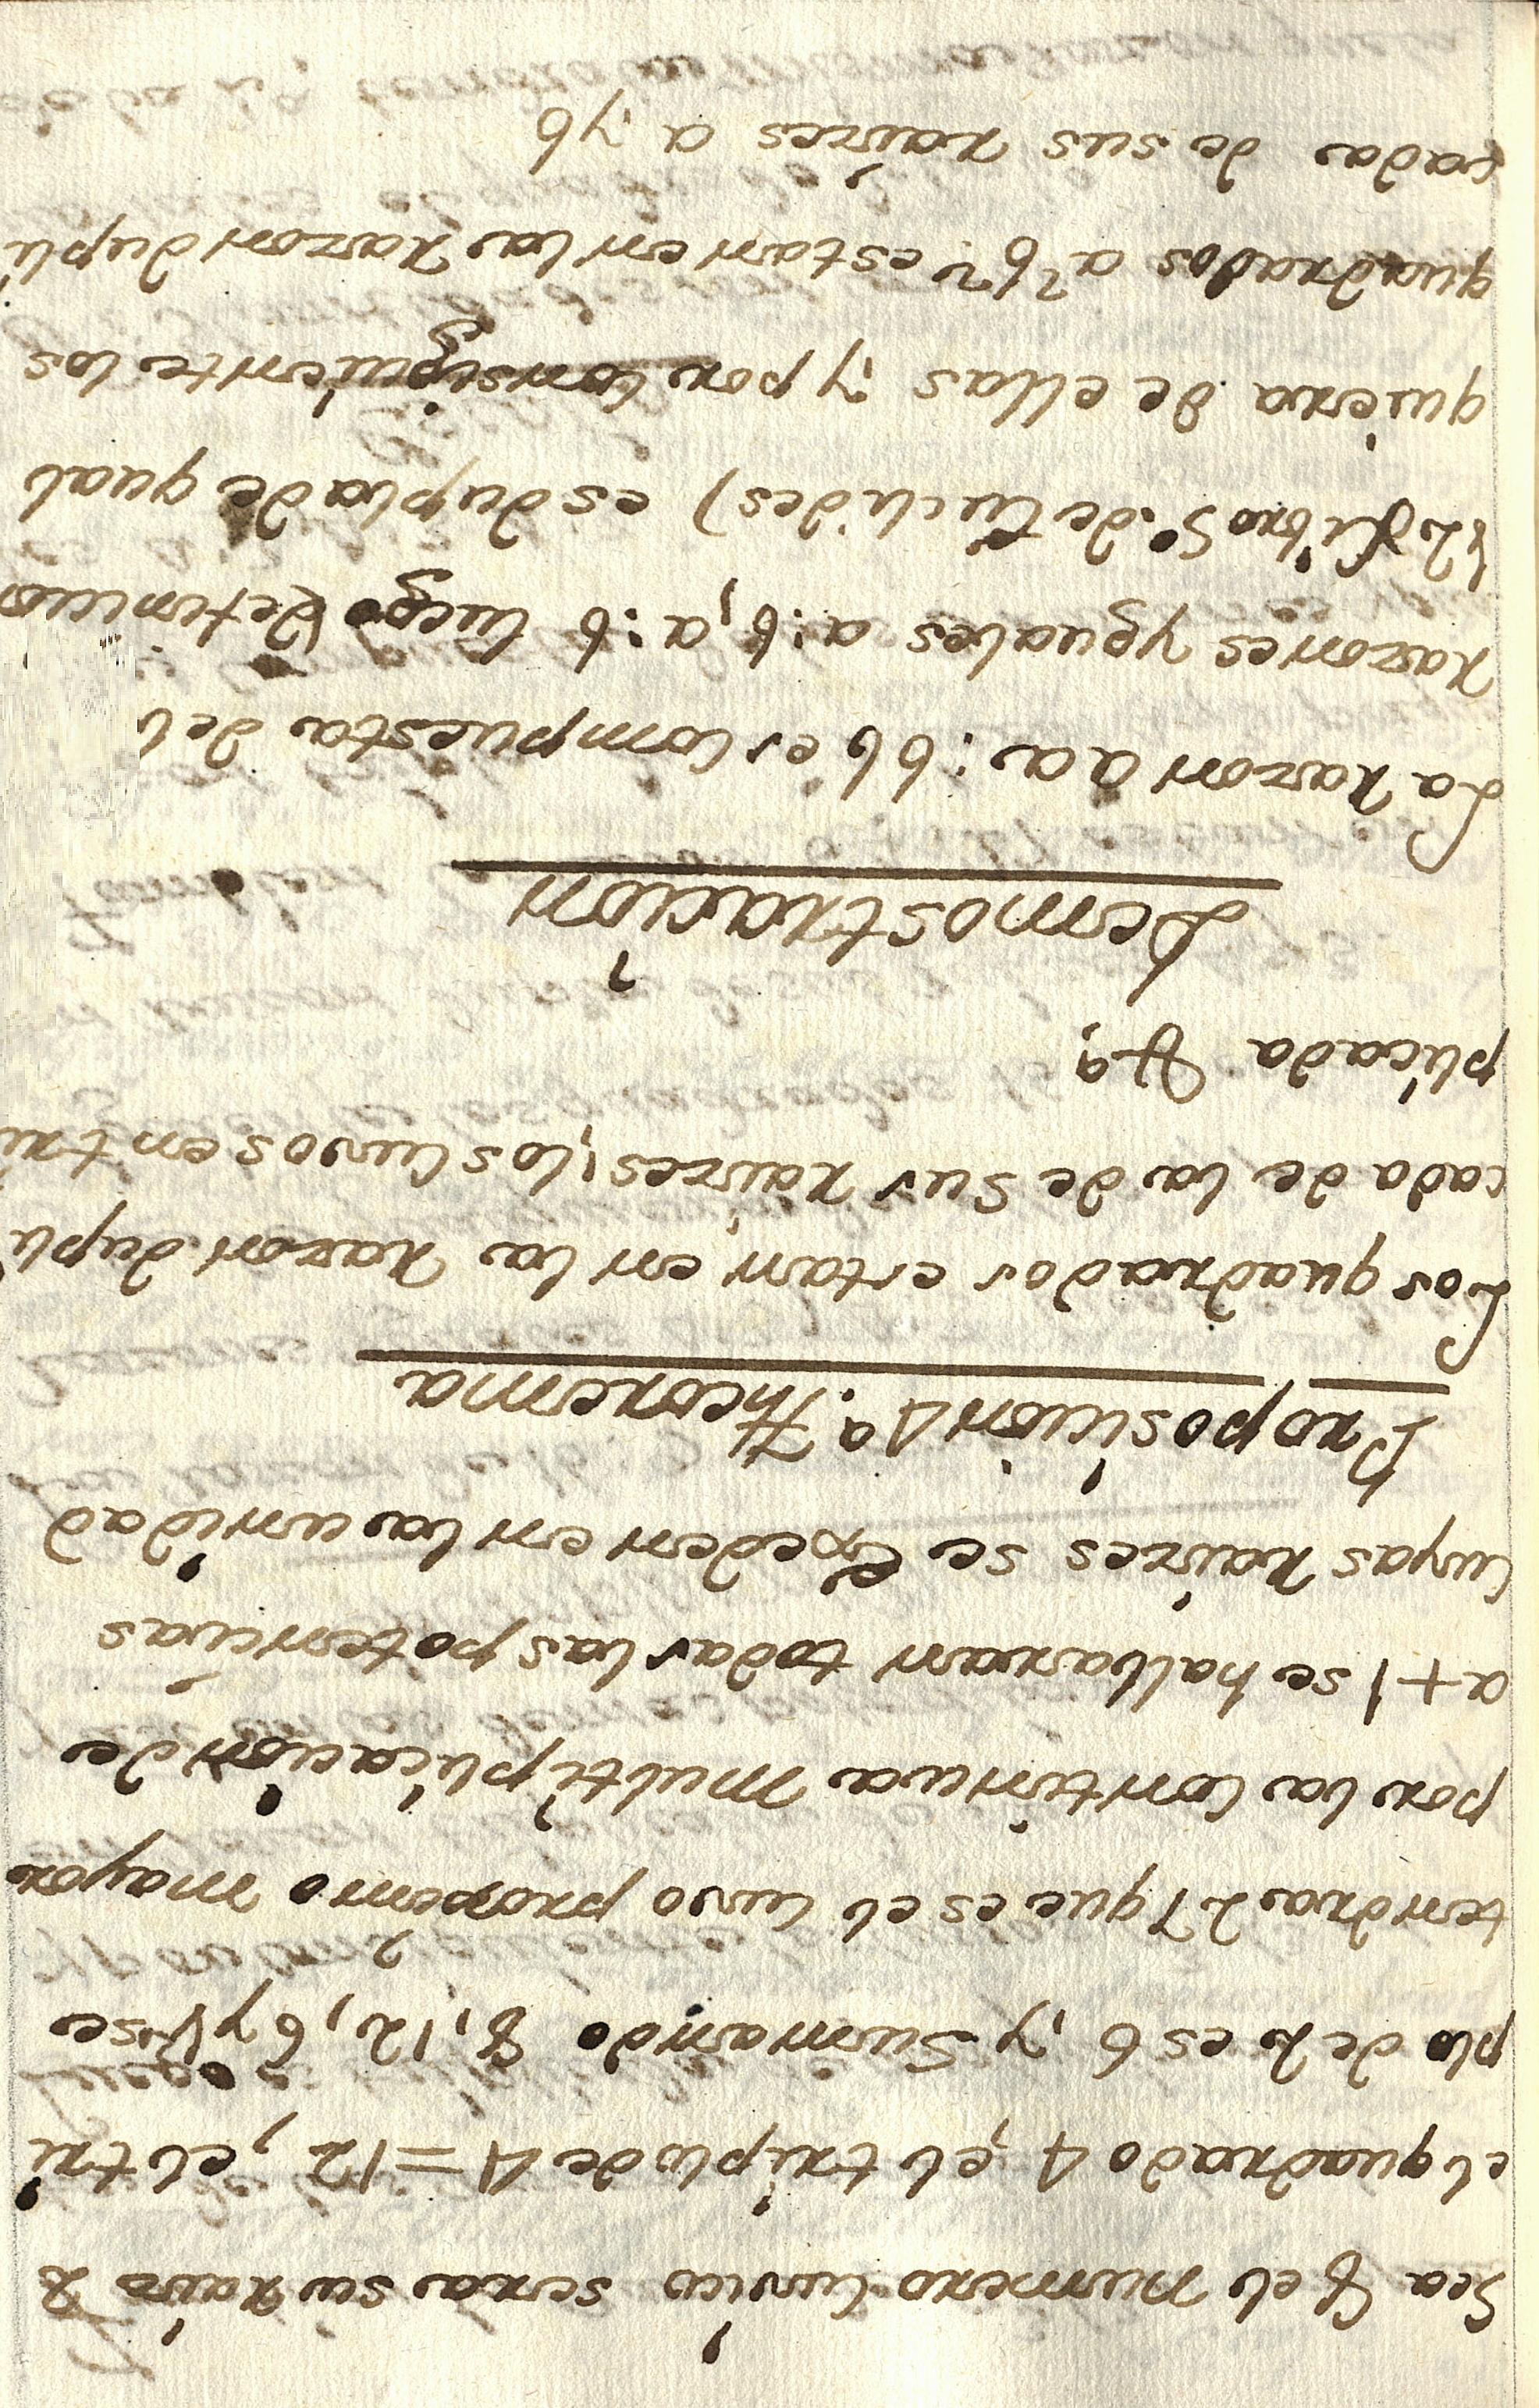 Sea 8 el numero cuvico sera su raiz 2
el quadrado 4, el triplo de 4=12, el tri
plo de 2 es 6, y sumando 8, 12, 6 y 1 se
tendra 27 que es el cuvo proximo mayor
por la continua multiplicacion de
a+1 se hallaran todas las potencias
cuyas raizes se Exeden en la unidad
Proposicion 4ª Theorema
Los quadrados estan en la razon dupli
cada de la de sus raizes, los cuvos en tri
plicada &ª,
Demostracion
La razon aa:bb es compuesta de
razones yguales a:b, a:b luego
Libro 5º de Euclides) es dupla de qual
quiera de ellas y por consiguiente los
quadrados a² b² estan en la razon dupli
cada de sus raizes a y b